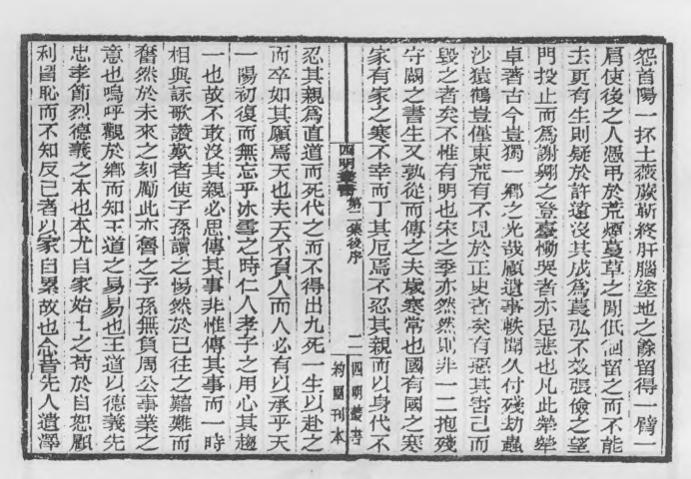 怨首陽一抔土薇蕨蘄終肝腦塗地之餘留得一臂一
肩使後之人憑弔於荒煙蔓草之間低佪留之而不能
去更有生則疑於許遠沒其成爲萇弘不效張儉之望
門投止而爲謝翺之登臺慟哭者亦足悲也凡此犖犖
卓著古今豈獨一鄉之光哉顧遺事軼聞久付殘劫蟲
沙猿鶴豈僅東荒有不見於正史者矣有惡其害己而
毀之者矣不惟有明也宋之季亦然然則非一二抱殘
守闕之書生又孰從而傳之夫歲寒常也國有國之寒
家有家之寒不幸而丁其厄焉不忍其親而以身代不
四明叢書 第二集後序 二 四明叢書 約園刊本
忍其親爲直道而死代之而不得出九死一生以赴之
而卒如其願焉天也夫天不負人而人必有以承乎天
一陽初復而無忘乎冰雪之時仁人孝子之用心其趨
一也故不敢沒其親必思傳其事非惟傳其事而一時
相與詠歌讚歎者使子孫讀之惕然於已往之艱難而
奮然於未來之刻勵此亦魯之子孫無負周公事業之
意也嗚呼觀於鄉而知王道之易易也王道以德義先
忠孝節烈德義之本也本尤自家始士之苟於自恕顧
利國恥而不知反己者以家自累故也念昔先人遺澤